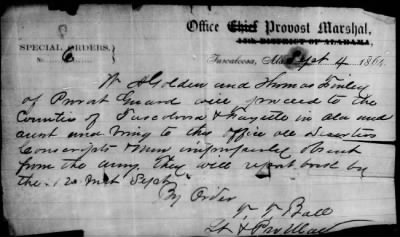 Office Chief Provost Marshal,
13th DISTRICT OF ALABAMA,
SPECIAL ORDERS,
No. 6
Tuscaloosa, Ala Sept 4 186
W A Golden and Thomas Finley
of Provost Guard will proceed to the
Counties of Tuscaloosa & Fayette in Ala and
arrest and bring to this office all deserters
Conscripts & Men improperly absent
from the army. They will report back by
the 12 inst Sept
By Order
T. F. Ball
Lt & Pro Mar